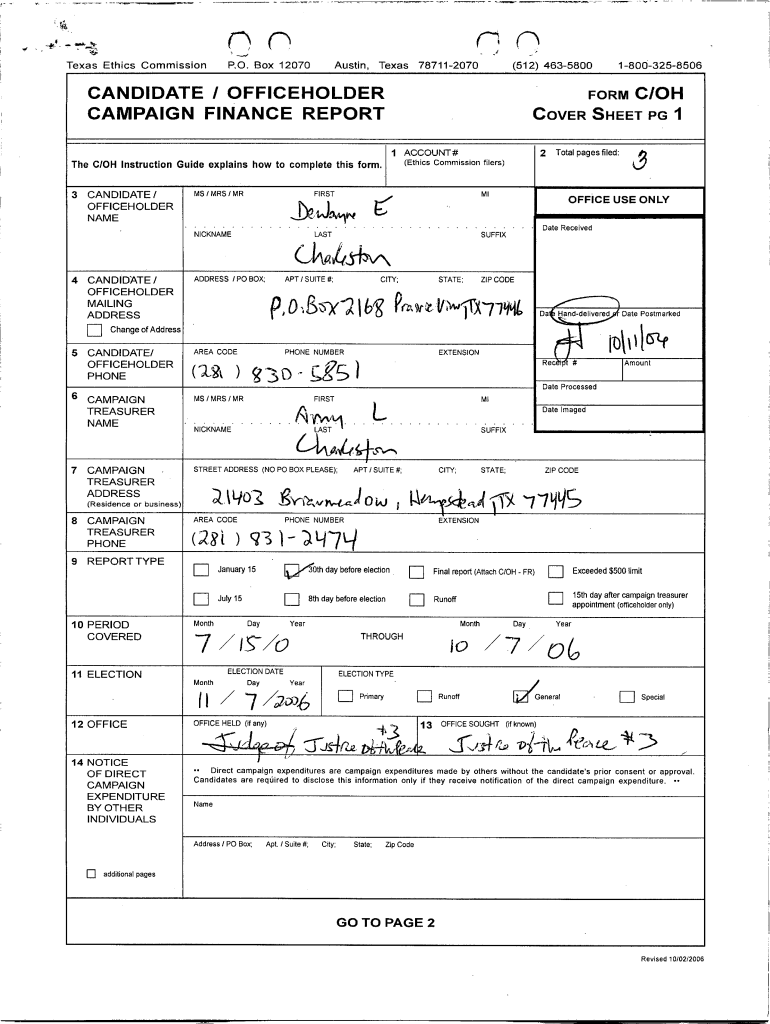 Texas Ethics Commission P.O. Box 12070 Austin, Texas 78711-2070 (512) 463-5800 1-800-325-8506
CANDIDATE / OFFICEHOLDER
CAMPAIGN FINANCE REPORT
FORM C/OH
COVER SHEET PG 1
The C/OH Instruction Guide explains how to complete this form.
1 ACCOUNT #
(Ethics Commission filers)
2 Total pages filed:
3
3 CANDIDATE /
OFFICEHOLDER
NAME
MS / MRS / MR FIRST MI
Dewayne E
NICKNAME LAST SUFFIX
Charleston
OFFICE USE ONLY
Date Received
4 CANDIDATE /
OFFICEHOLDER
MAILING
ADDRESS
Change of Address
ADDRESS / PO BOX; APT / SUITE #; CITY; STATE; ZIP CODE
P.O. Box 2168 Prairie View, TX 77446
Date Hand-delivered or Date Postmarked
10/11/06
Receipt # Amount
5 CANDIDATE/
OFFICEHOLDER
PHONE
AREA CODE PHONE NUMBER EXTENSION
(281) 830-5851
Date Processed
Date Imaged
6 CAMPAIGN
TREASURER
NAME
MS / MRS / MR FIRST MI
Amy L
NICKNAME LAST SUFFIX
Charleston
7 CAMPAIGN
TREASURER
ADDRESS
(Residence or business)
STREET ADDRESS (NO PO BOX PLEASE); APT / SUITE #; CITY; STATE; ZIP CODE
21403 Briarmeadow, Hempstead, TX 77445
8 CAMPAIGN
TREASURER
PHONE
AREA CODE PHONE NUMBER EXTENSION
(281) 831-2474
9 REPORT TYPE
January 15 30th day before election Final report (Attach C/OH - FR) Exceeded $500 limit
July 15 8th day before election Runoff 15th day after campaign treasurer
appointment (officeholder only)
10 PERIOD
COVERED
Month Day Year THROUGH Month Day Year
7 / 15 / 0 10 / 7 / 06
11 ELECTION
ELECTION DATE
Month Day Year
11 / 7 / 2006
ELECTION TYPE
Primary Runoff General Special
12 OFFICE
OFFICE HELD (if any)
Judge of, Justice of the Peace #3
13 OFFICE SOUGHT (if known)
Justice of the Peace #3
14 NOTICE
OF DIRECT
CAMPAIGN
EXPENDITURE
BY OTHER
INDIVIDUALS
additional pages
•• Direct campaign expenditures are campaign expenditures made by others without the candidate's prior consent or approval.
Candidates are required to disclose this information only if they receive notification of the direct campaign expenditure. ••
Name
Address / PO Box; Apt. / Suite #; City; State; Zip Code
GO TO PAGE 2
Revised 10/02/2006